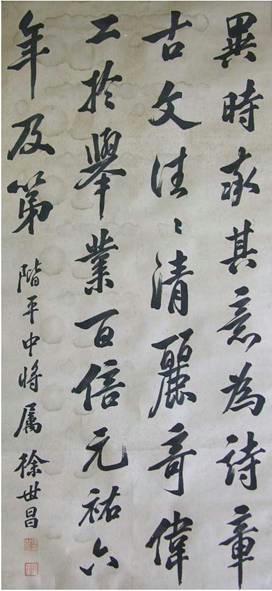 異時取其意為詩章
古文往々清麗奇偉
工於舉業百倍元祐六
年及第
階平中將属 徐世昌